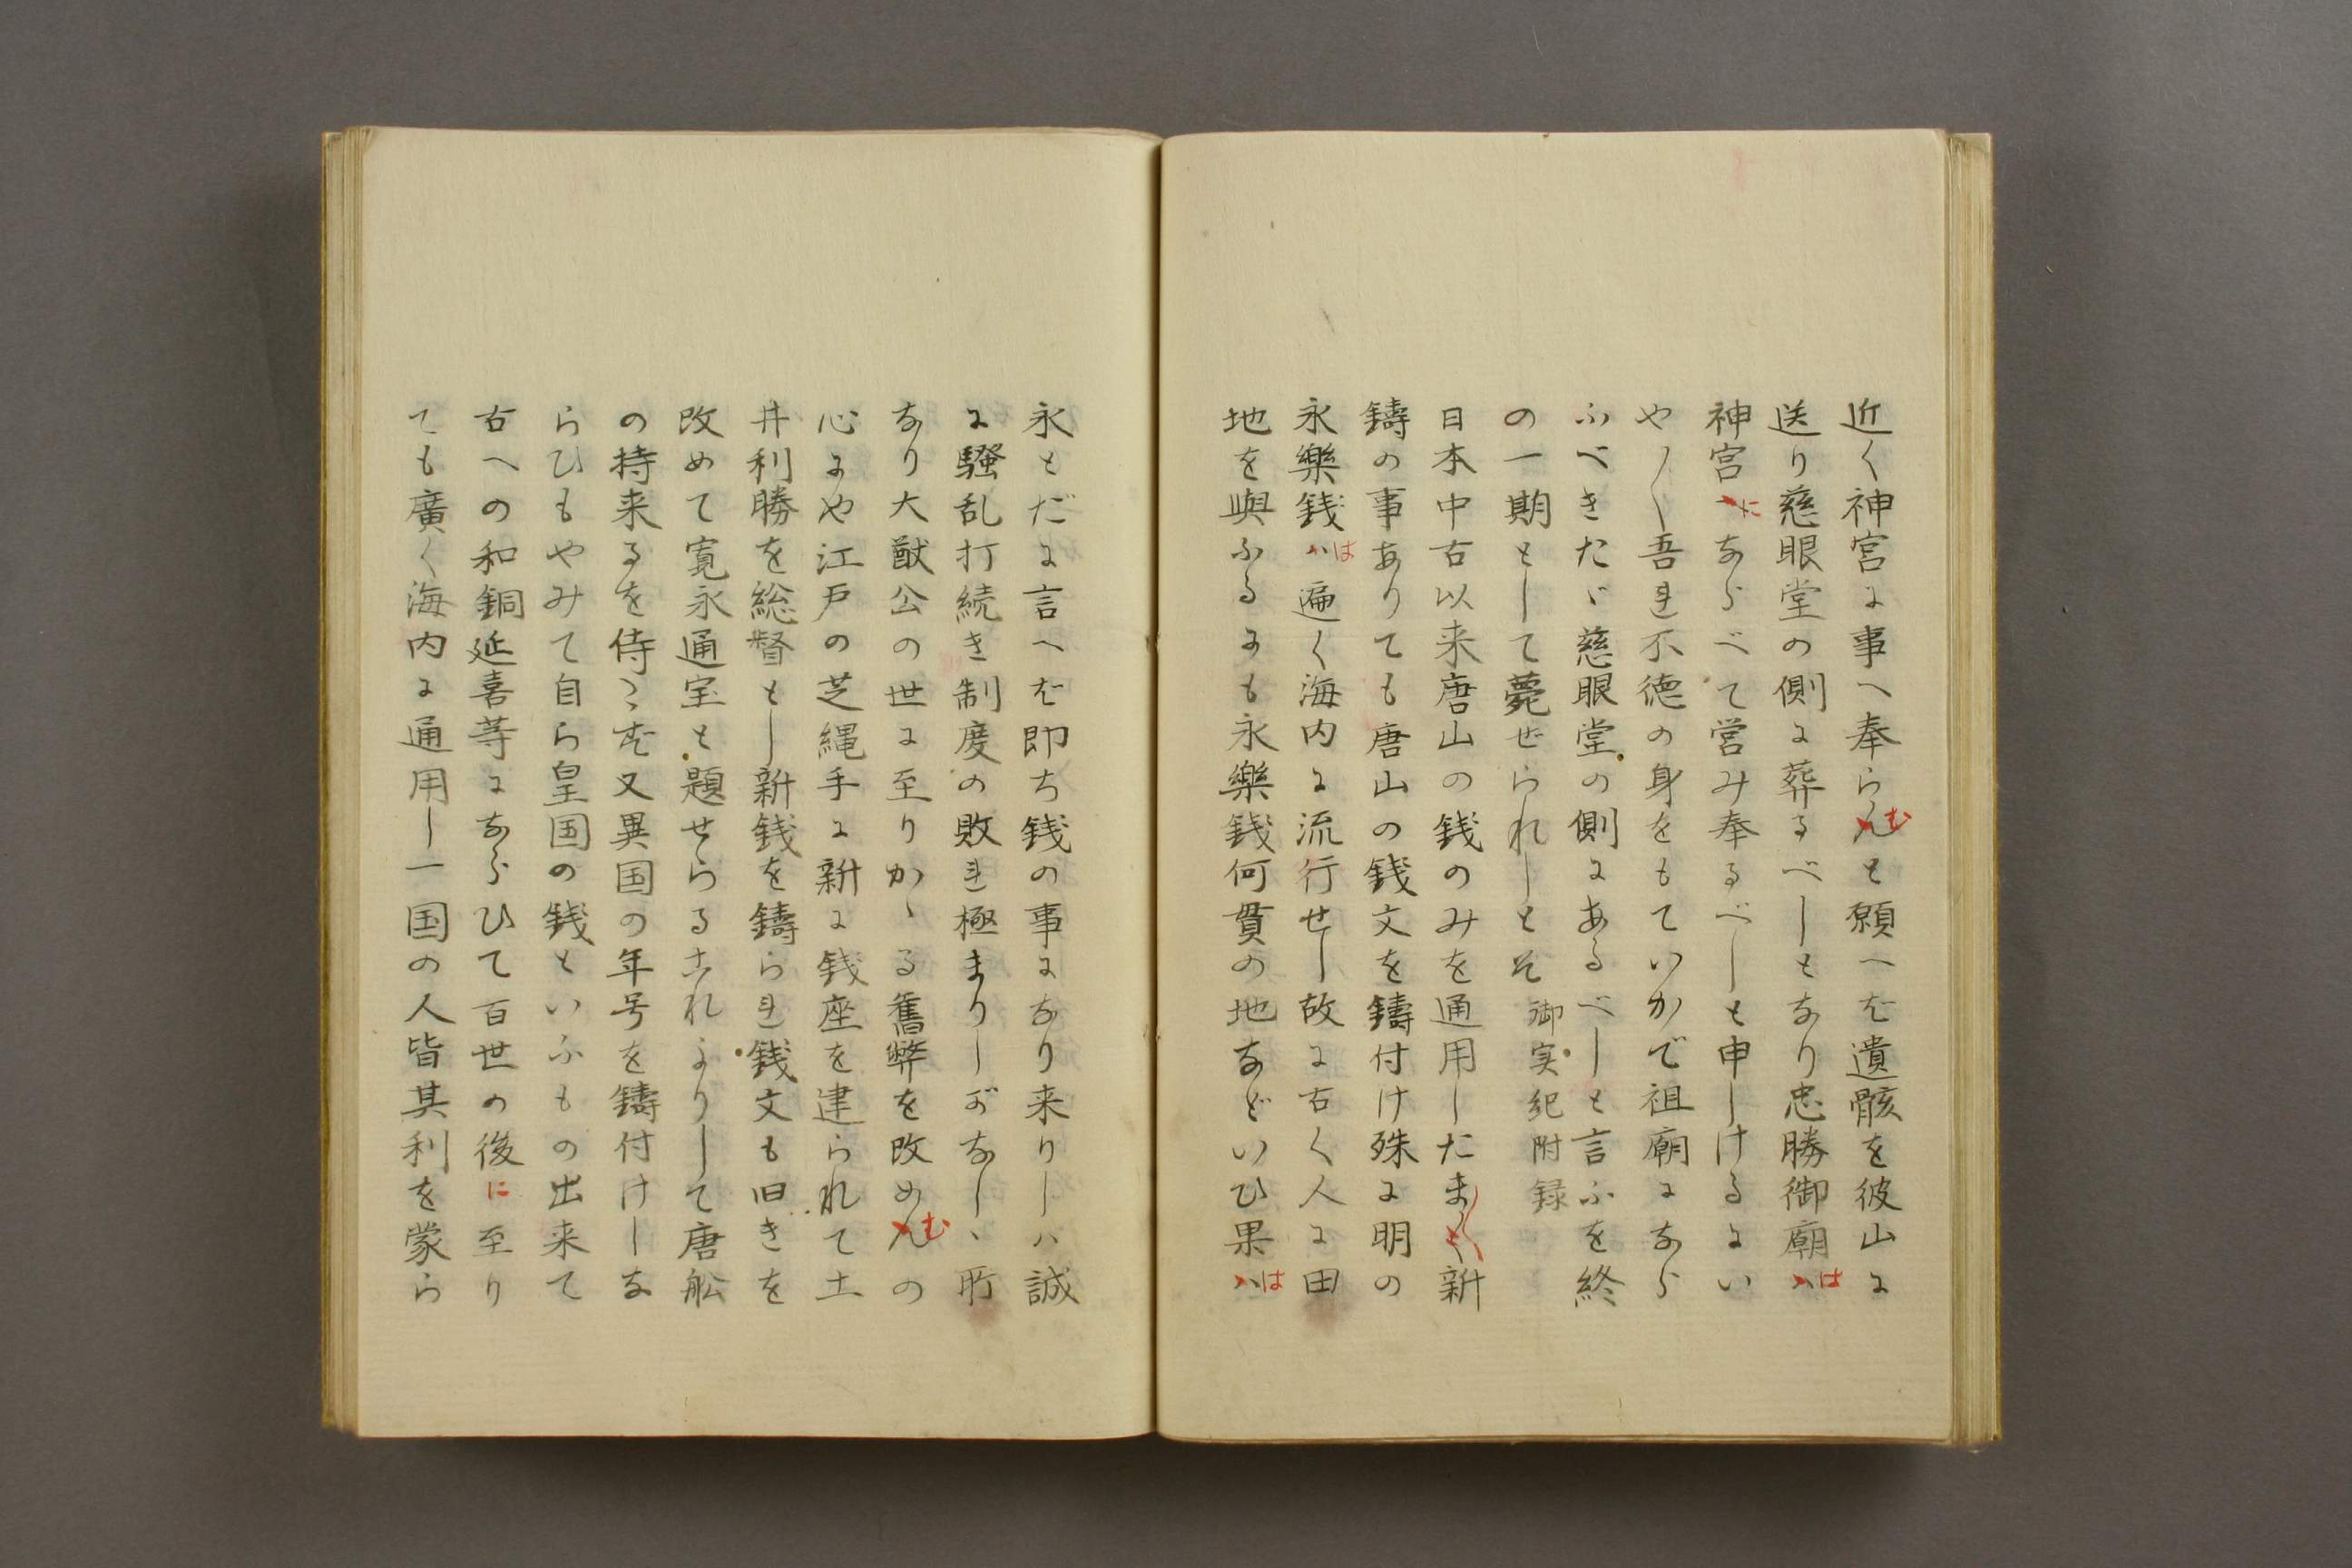 近く神宮に事へ奉らむと願へば遺骸を彼山に
送り慈眼堂の側に葬るべしとなり忠勝御廟は
神宮にならべて営み奉るべしと申しけるにい
や〱吾れ不徳の身をもていかで祖廟になら
ふべきたゞ慈眼堂の側にあるべしと言ふを終
の一期として薨ぜられしとぞ 御実紀附録
日本中古以来唐山の銭のみを通用したま〱新
鋳の事ありても唐山の銭文を鋳付け殊に明の
永樂銭は遍く海内に流行せし故に古く人に田
地を與ふるにも永樂銭何貫の地などいひ果は
永とだに言へば即ち銭の事になり来りしハ誠
に騒乱打続き制度の敗れ極まりしがなしゝ所
なり大猷公の世に至りかゝる舊弊を改めむの
心にや江戸の芝縄手に新に銭座を建られて土
井利勝を総督とし新銭を鋳られ銭文も旧きを
改めて寛永通宝と題せらるこれよりして唐舩
の持来るを待〻ず又異国の年号を鋳付けしな
らひもやみて自ら皇国の銭といふもの出来て
古への和銅延喜等にならひて百世の後に至り
ても廣く海内に通用し一国の人皆其利を蒙ら